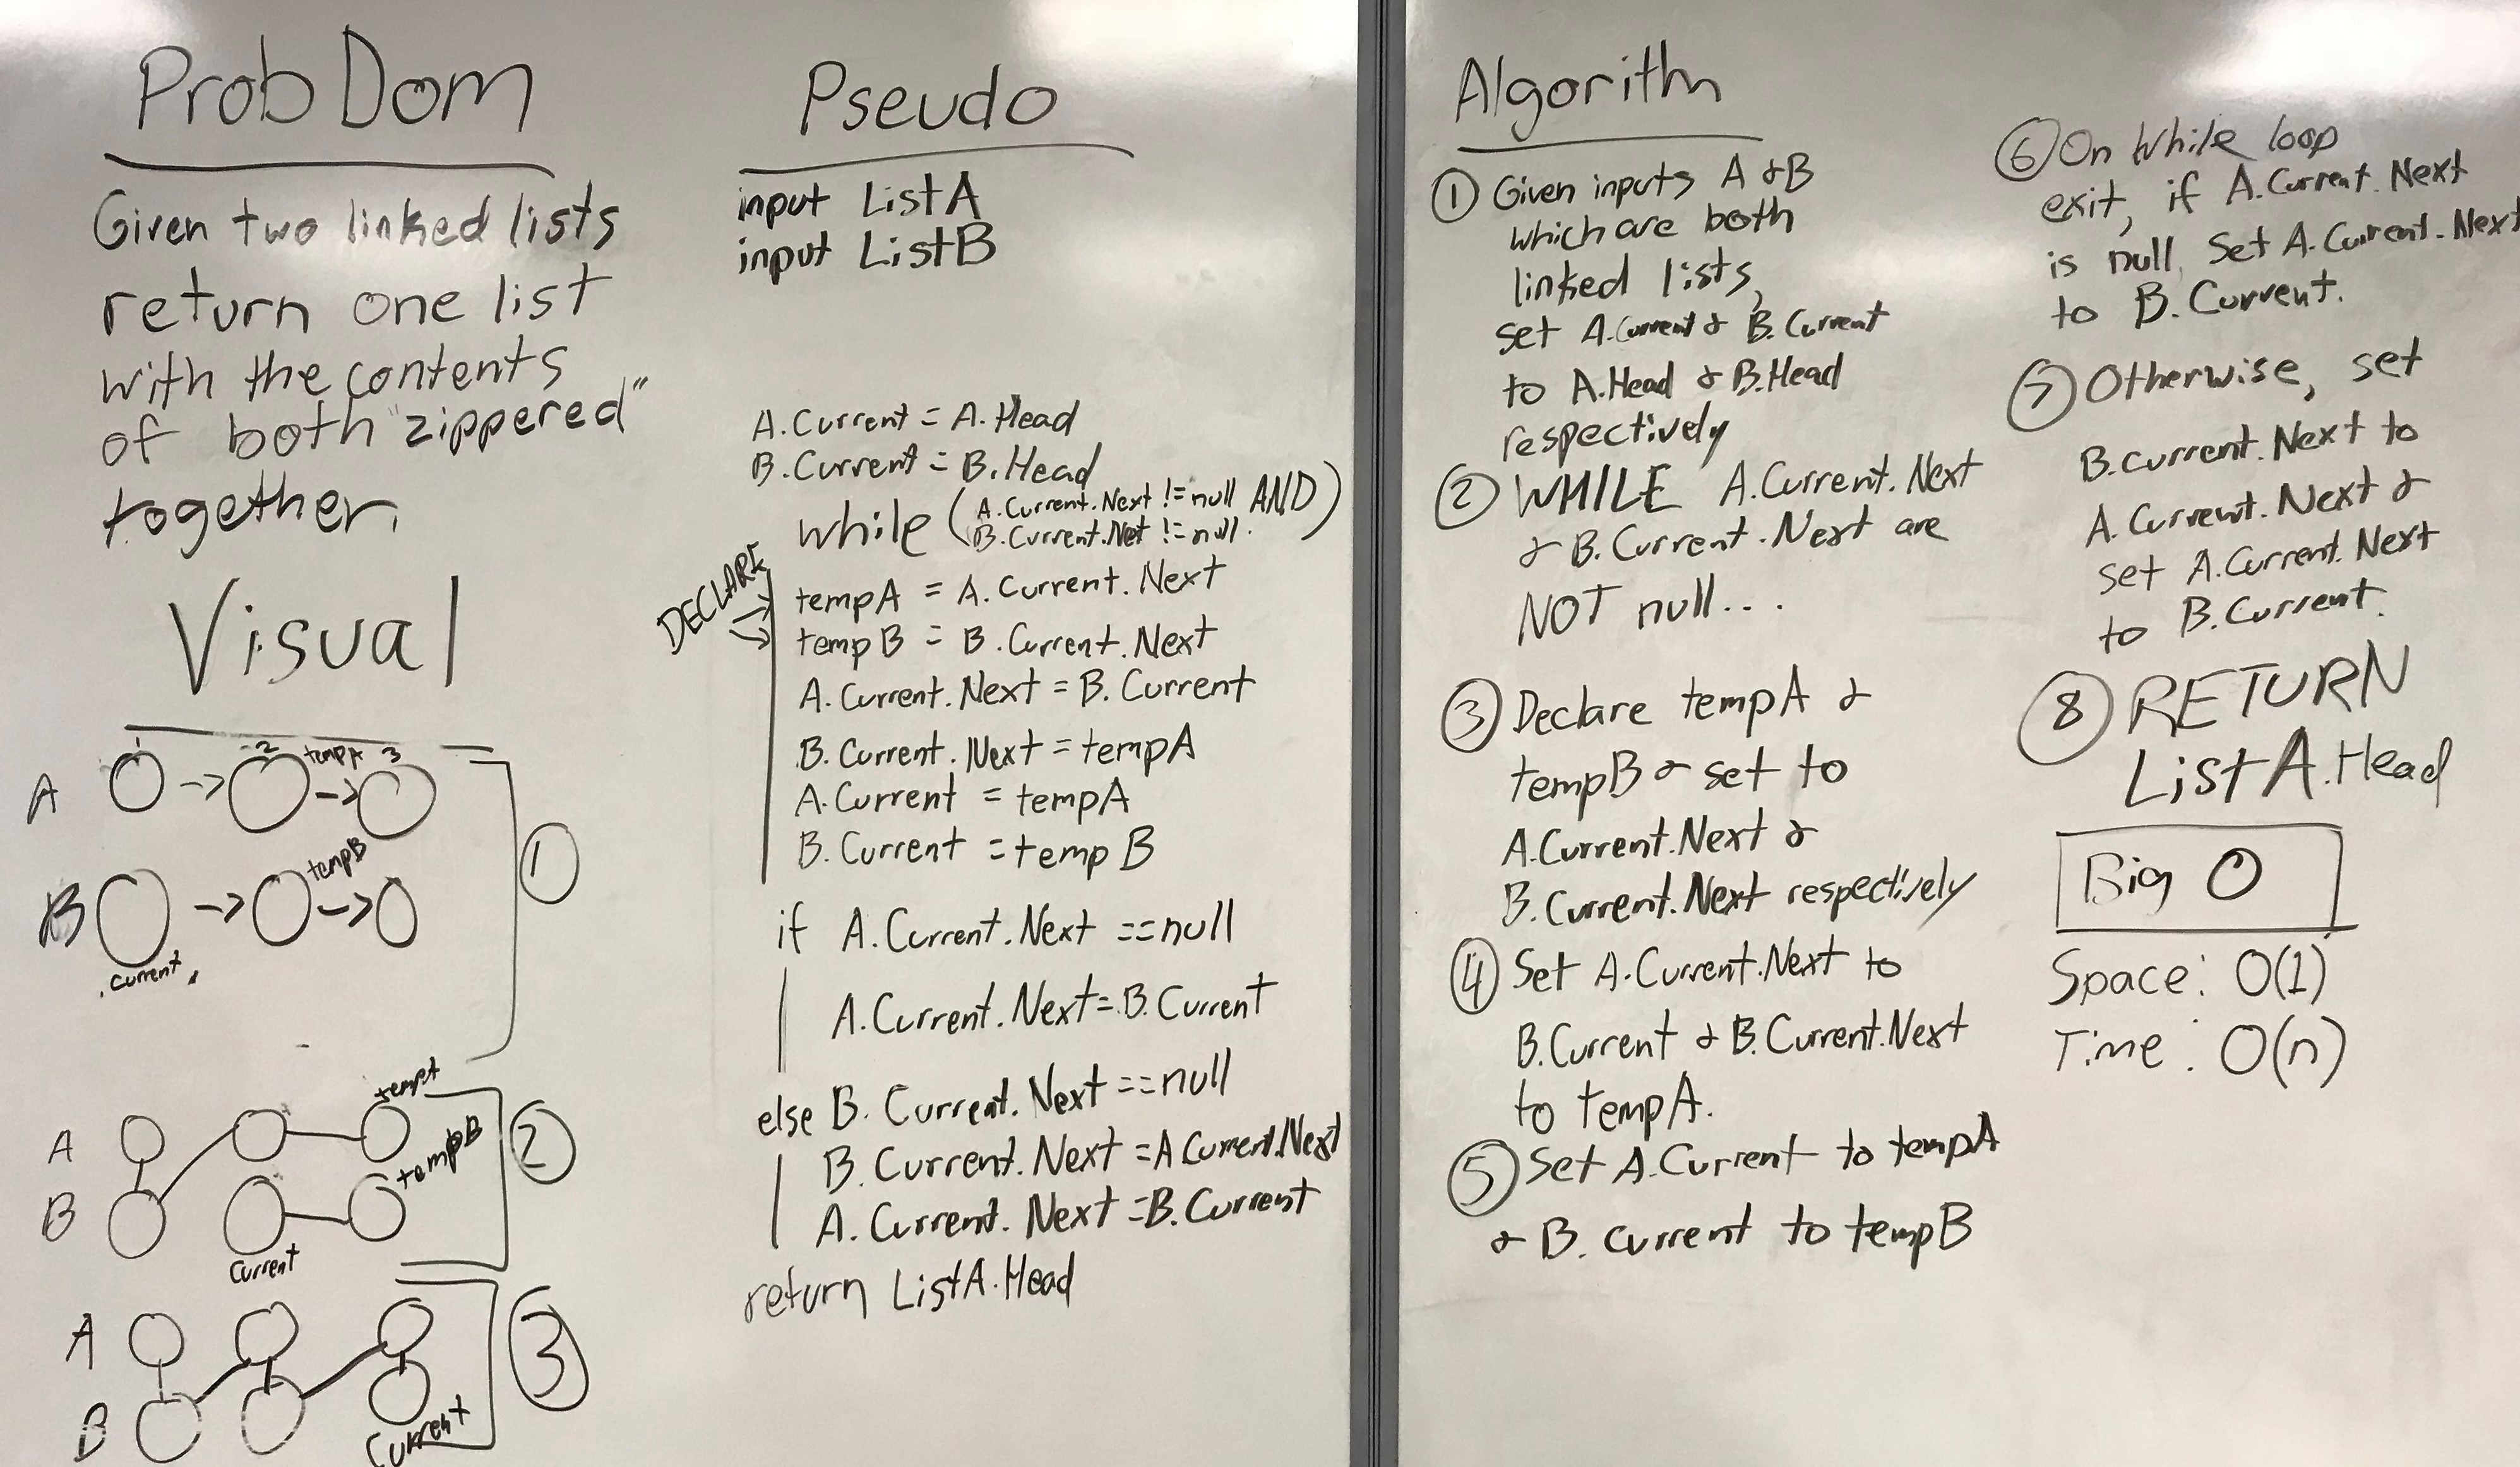 Prob Dom
Given two linked lists
return one list
with the contents
of both "zippered"
together.
Visual
1 2 tempA 3
A
tempB
B
.current
1
tempA
A
tempB
B
Current
2
A
B
Current
3
Pseudo
input ListA
input ListB
A.Current = A.Head
B.Current = B.Head
while (A.Current.Next != null AND)
B.Current.Net != null.
DECLARE
tempA = A.Current.Next
tempB = B.Current.Next
A.Current.Next = B.Current
B.Current.Next = tempA
A.Current = tempA
B.Current = tempB
if A.Current.Next ==null
A.Current.Next = B.Current
else B.Current.Next ==null
B.Current.Next = A Current.Next
A.Current.Next = B.Current
return ListA.Head
Algorithm
① Given inputs A & B
which are both
linked lists,
set A.Current & B.Current
to A.Head & B.Head
respectively
② WHILE A.Current.Next
& B.Current.Next are
NOT null...
③ Declare tempA &
tempB & set to
A.Current.Next &
B.Current.Next respectively
④ Set A.Current.Next to
B.Current & B.Current.Next
to tempA.
⑤ Set A.Current to tempA
& B.current to tempB
⑥ On While loop
exit, if A.Current.Next
is null, Set A.Current.Next
to B.Current.
⑦ Otherwise, set
B.current.Next to
A.Current.Next &
set A.Current.Next
to B.Current.
⑧ RETURN
ListA.Head
Big O
Space: O(1)
Time: O(n)